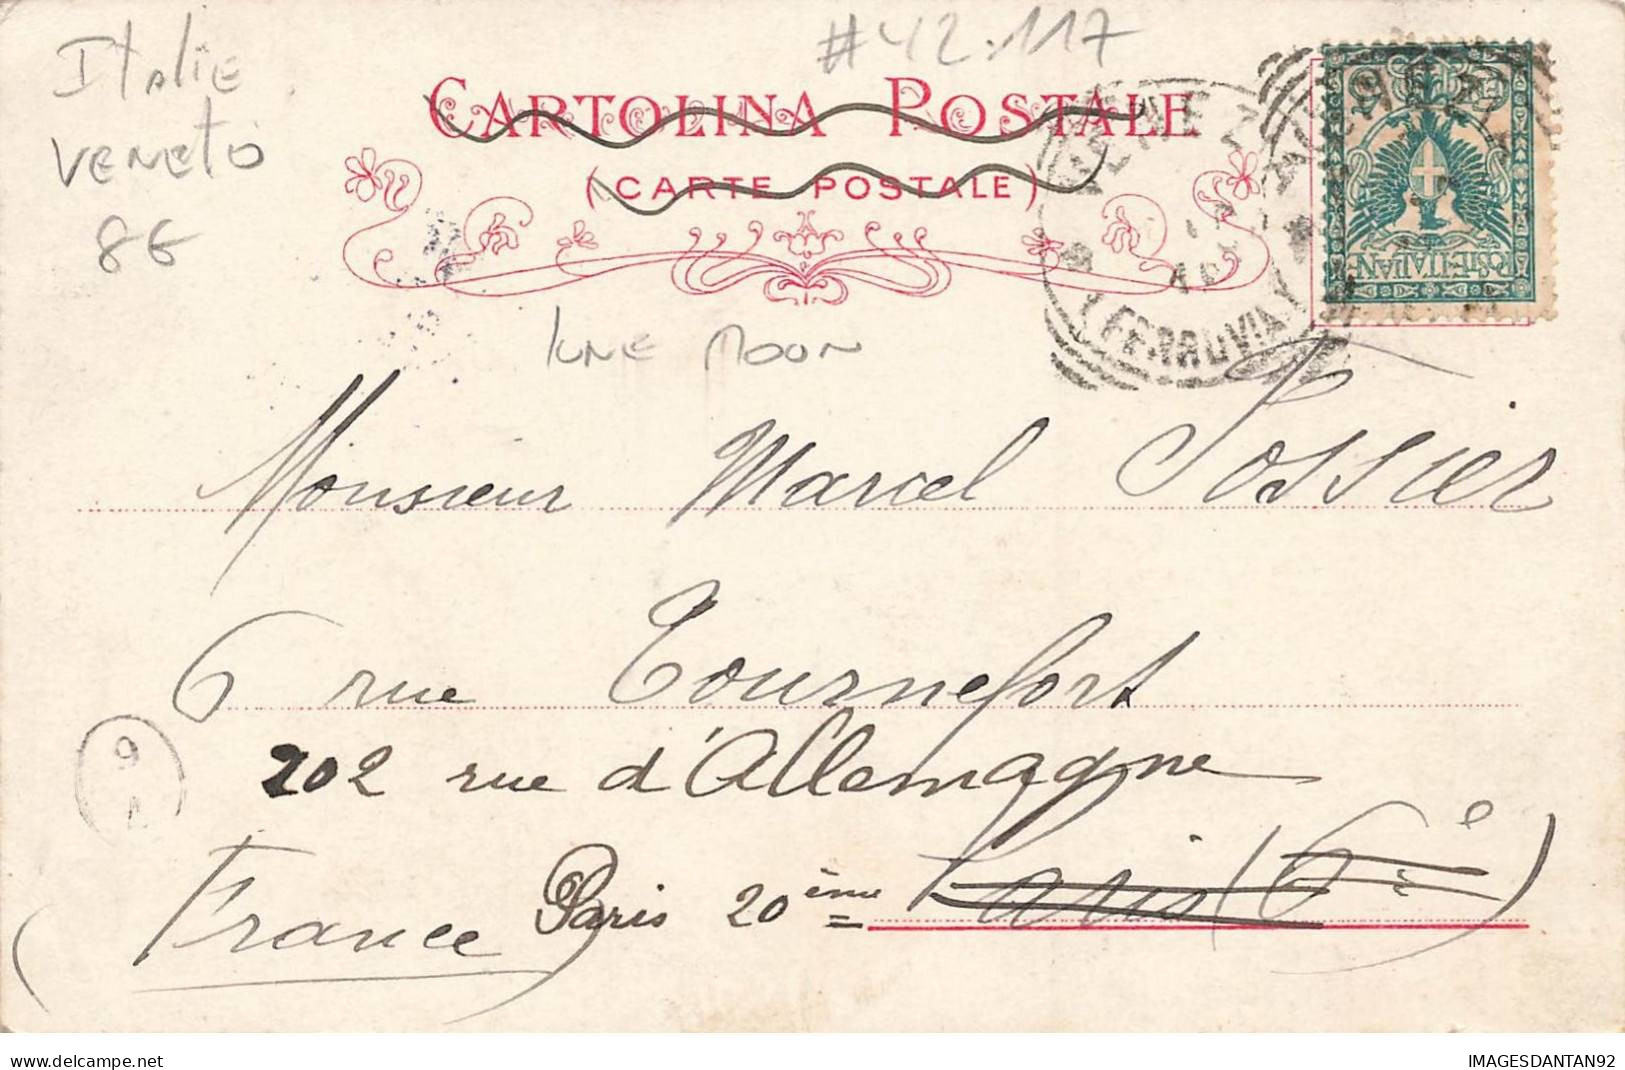 Italie
Veneto
8€
#42.117
CARTOLINA POSTALE
(CARTE POSTALE)
POSTE ITALIANE
FERROVIA
lune moon
Monsieur Marcel Possier
6 rue Tournefort
202 rue d'Allemagne
Paris (6e)
(France) Paris 20ème
www.delcampe.net
IMAGESDANTAN92